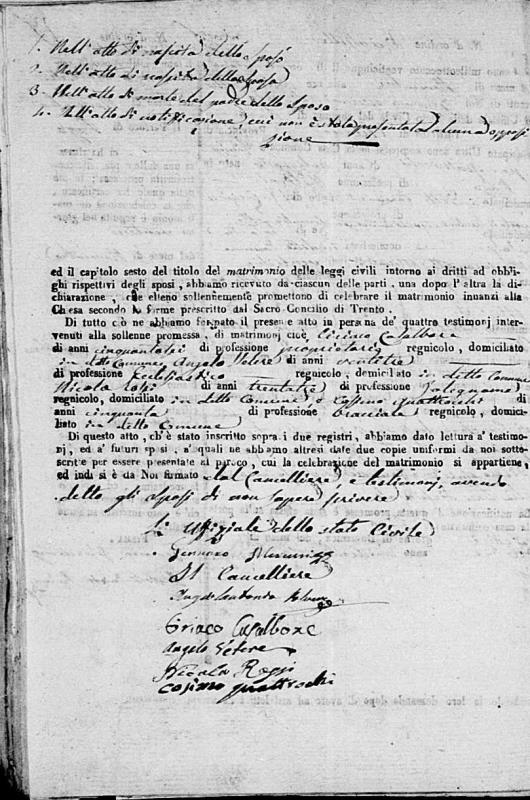 1. Nell'atto di nascita dello sposo
2. Nell'atto di nascita della sposa
3. Nell'atto di morte del padre dello sposo
4. Nell'atto di notificazione, cui non è stata presentata alcuna opposi
zione
ed il capitolo sesto del titolo del matrimonio delle leggi civili intorno ai dritti ad obbli-
ghi rispettivi degli sposi, abbiamo ricevuto da ciascun delle parti, una dopo l'altra la di-
chiarazione, che elleno sollennemente promettono di celebrare il matrimonio inuanzi alla
Chesa secondo le forme prescritto dal Sacro Concilio di Trento.
Di tutto ciò ne abbiamo formato il presente atto in persona de' quattro testimonj inter-
venuti alla sollenne promessa, di matrimonj cioè, Ciriaco Casalbore
di anni cinquantasei di professione regnicolo, domiciliato
in detto Comune, Angelo Vetere di anni trentatre
di professione Ecclesiastico regnicolo, domiciliato in detto Comune
Nicola Rossi di anni trentatre di professione Falegname
regnicolo, domiciliato in detto Comune e Cosimo Quattrochi di
anni cinquanta di professione bracciale regnicolo, domici-
liato in detto Comune
Di questo atto, ch'è stato inscritto sopra i due registri, abbiamo dato lettura a' testimo-
nj, ed a' futuri sposi, a' quali ne abbiamo altresi date due copie uniformi da noi sotto-
scritte per essere presentate al paroco, cui la celebrazione del matrimonio si appartiene,
ed indi si è da Noi firmato dal Cancelliere, e testimonj, avendo
detto gli Sposi di non sapere scrivere
L'Uffiziale dello stato Civile
Gennaro
Il Cancelliere
Ciriaco Casalbore
Angelo Vetere
Nicola Rossi
cosimo quattrochi